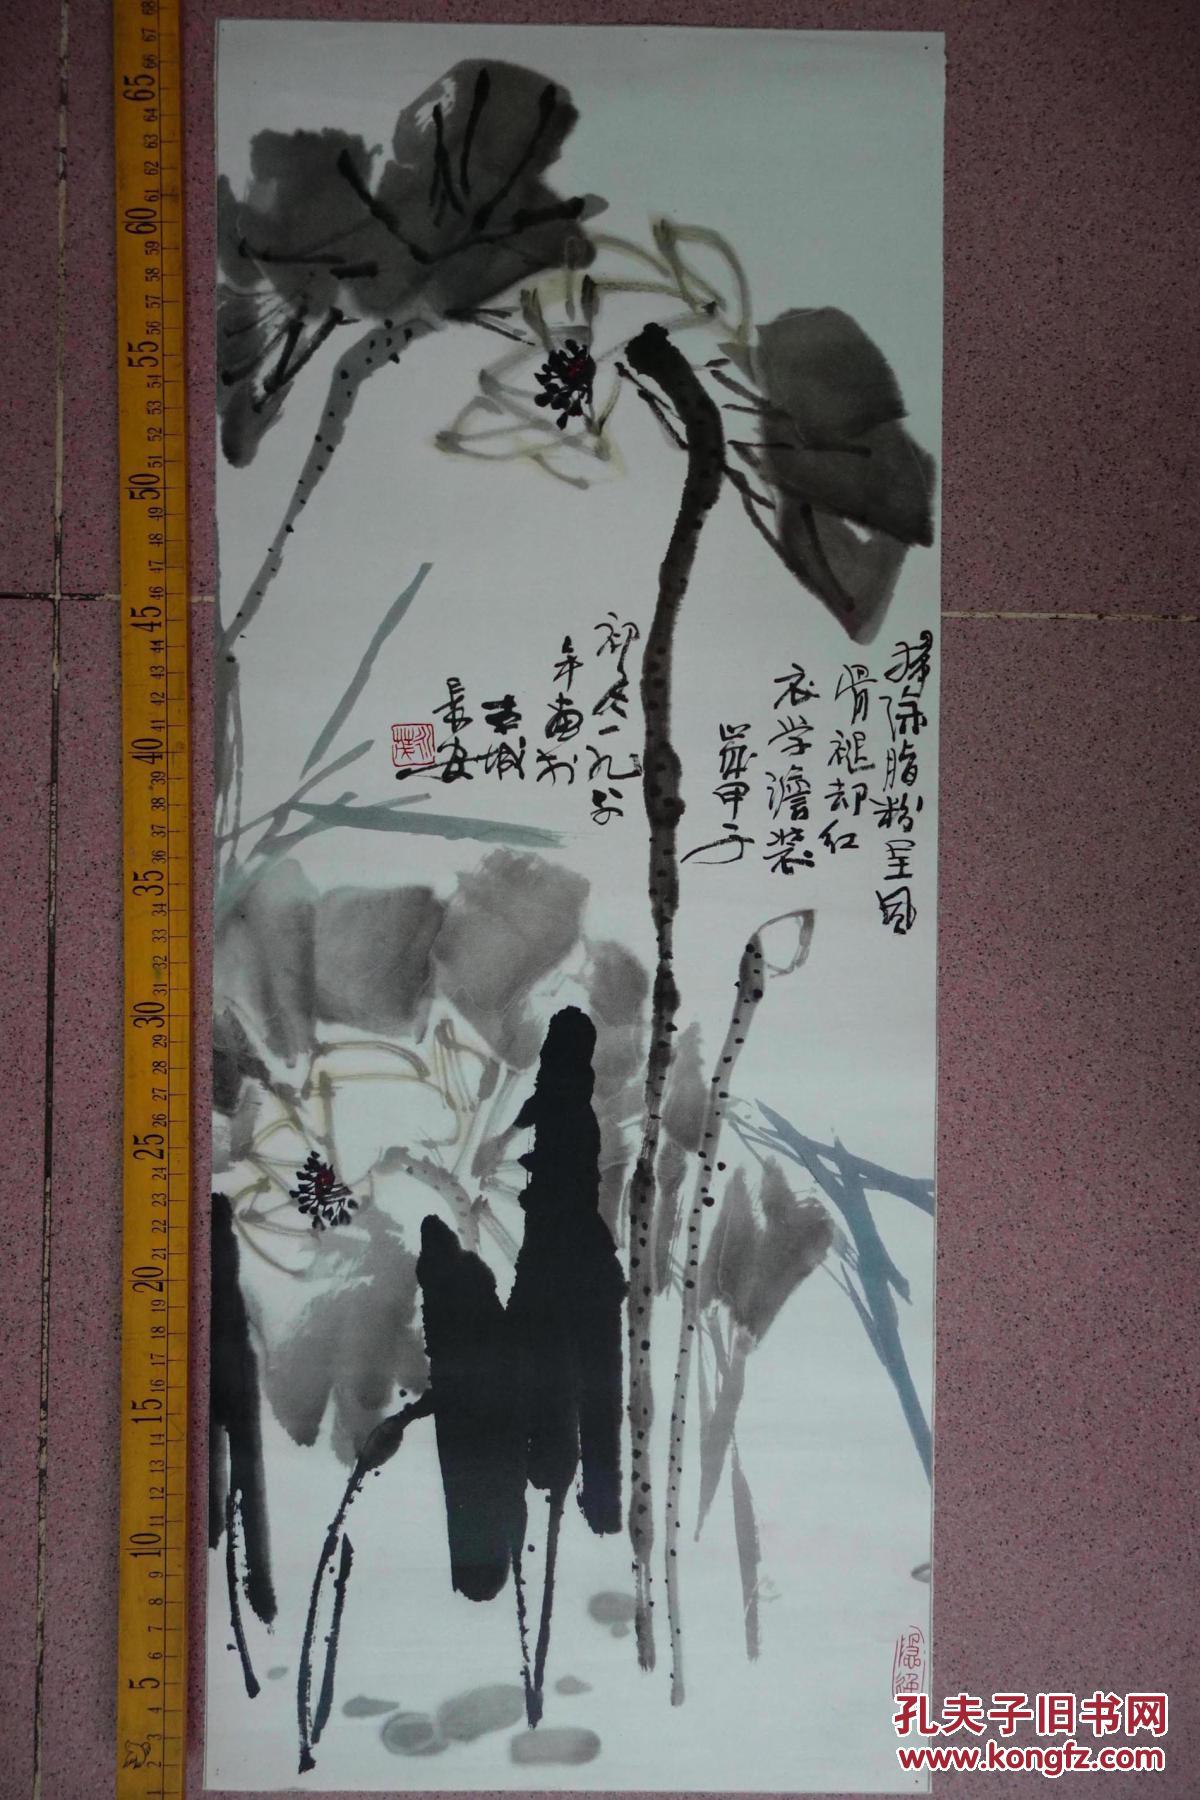 扫除脂粉呈风
骨褪却红
衣学澹装
岁甲子
初冬一九八
年画于
古城
长安
孔夫子旧书网
www.kongfz.com
65
60
55
50
45
40
35
30
25
20
15
10
5